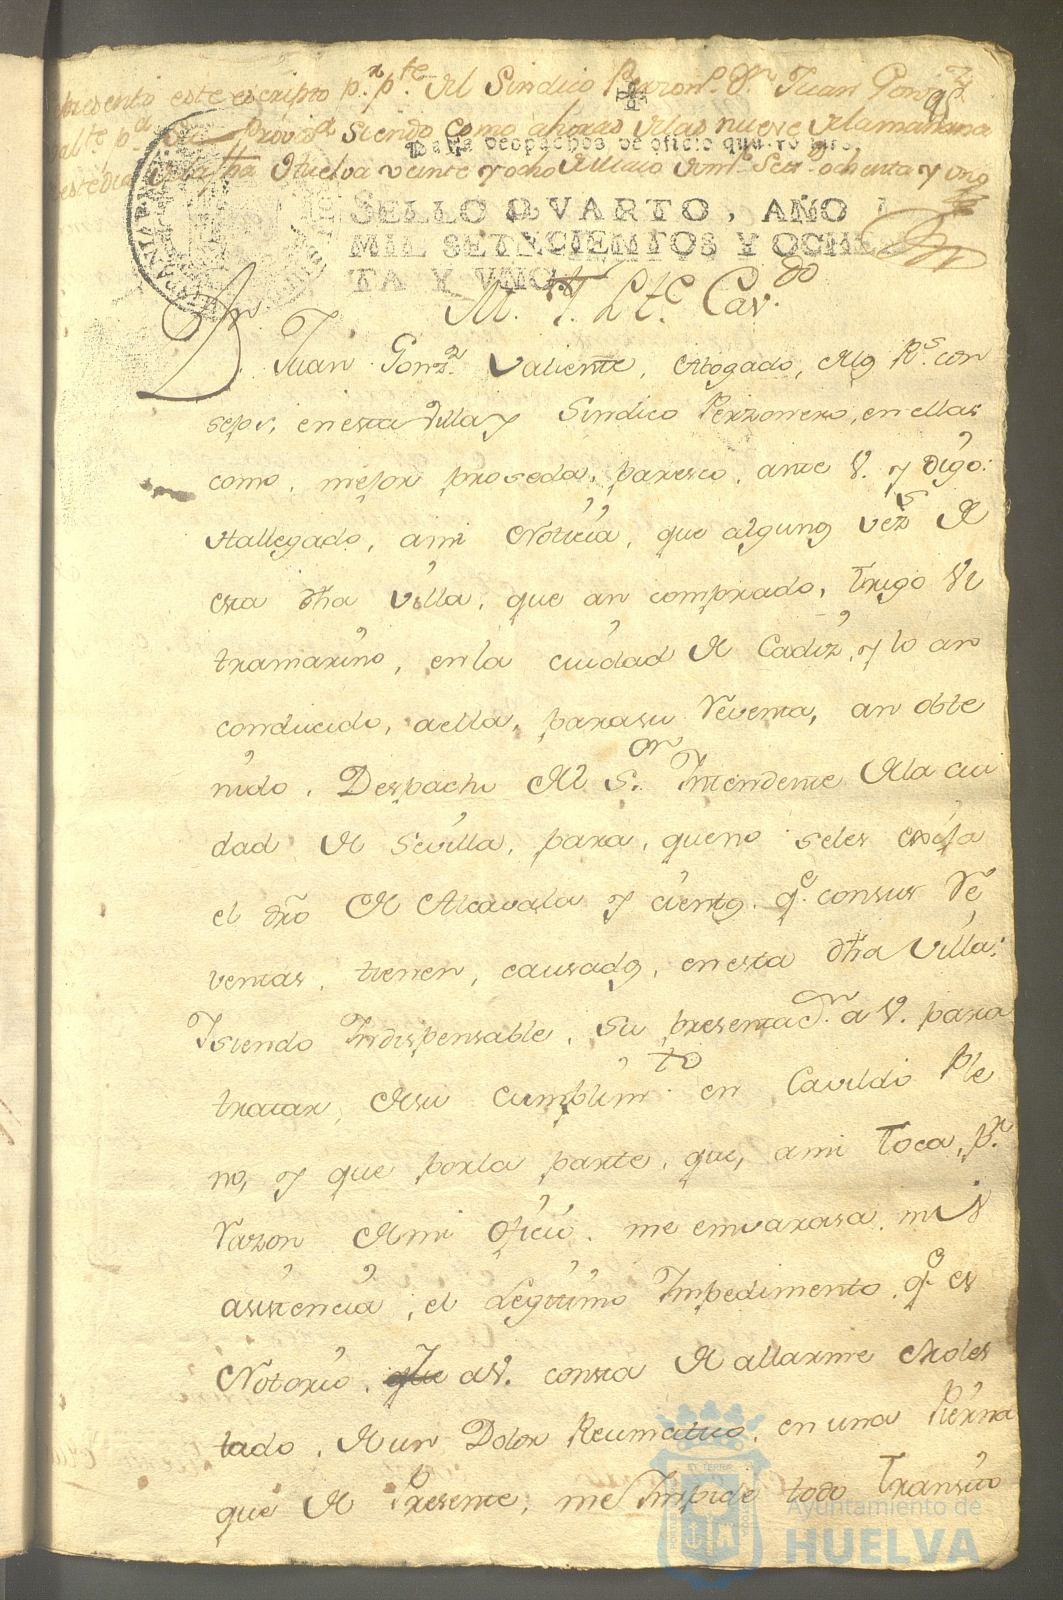 presento este escripto p.r p.te del Sindico Perzon.o D.n Juan Gonz.z
Valte p.a Provid.a siendo como ahoras delas nueve dela mañana
este dia dela fha Huelva veinte y ocho de Maio de mil Set.s ochenta y uno
Para despachos de oficio quatro mrs.
SELLO QVARTO, AÑO
MIL SETECIENTOS Y OCHEN
TA Y VNO.
M. Y. Ltē Cav.do
D.n Juan Gonz.z Valiente, Abogado, delos R.s con
sejos, en esta Villa y Sindico Perzonero, en ella,
como, mejor proseda, paresco, ante V. y Digo:
Hallegado, ami Noticia, que algunos vez.s de
esta dha Villa, que an comprado, trigo Vl
tramarino, en la ciudad de Cadiz, y lo an
conducido, aella, parasu Reventa, an obte
nido, Despacho del S.or Intendente dela ciu
dad de Sevilla, para, queno seles exija
el dro de Alcavala y cientos q.e consus Re
ventas, tienen, causados, en esta dha Villa:
Ysiendo Indispensable, su presentac.n a V. para
tratar, desu cumplim.to en Cavildo Ple
no, y que porla parte, que, ami Toca, p.r
Razon demi oficio, me envarasa, mi
asistencia, el Legitimo Impedimento, q.e es
Notorio, que aV. consta de allarme moles
tado, deun Dolor Reumatico, en una Pierna
que de Presente, me Impide todo Transito
Ayuntamiento de
HUELVA